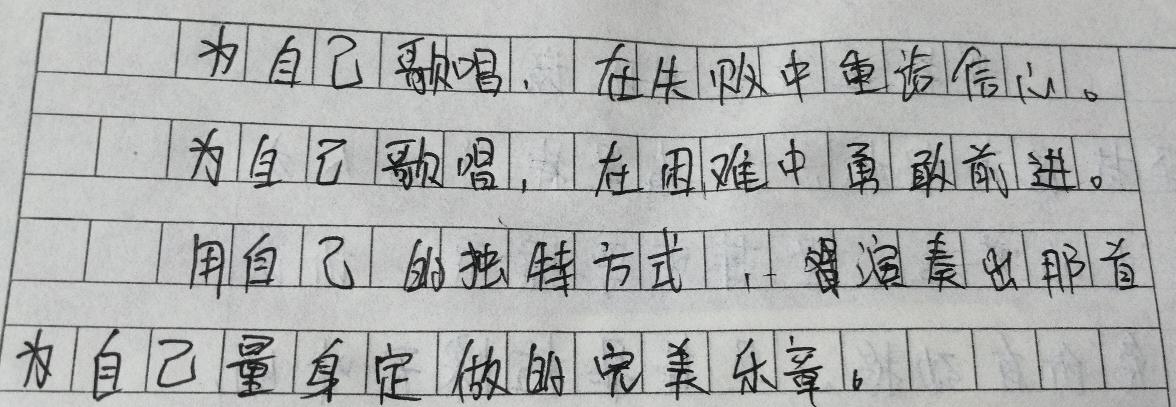 为自己歌唱，在失败中重访信心。
为自己歌唱，在困难中勇敢前进。
用自己的独特方式，演奏出那首
为自己量身定做的完美乐章。